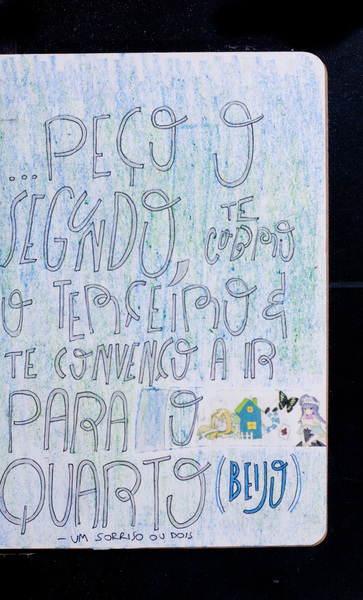 ...PEÇO O
SEGUNDO, TE CUBRO
O TERCEIRO &
TE CONVENÇO A IR
PARA O
QUARTO (BEIJO)
– UM SORRISO OU DOIS